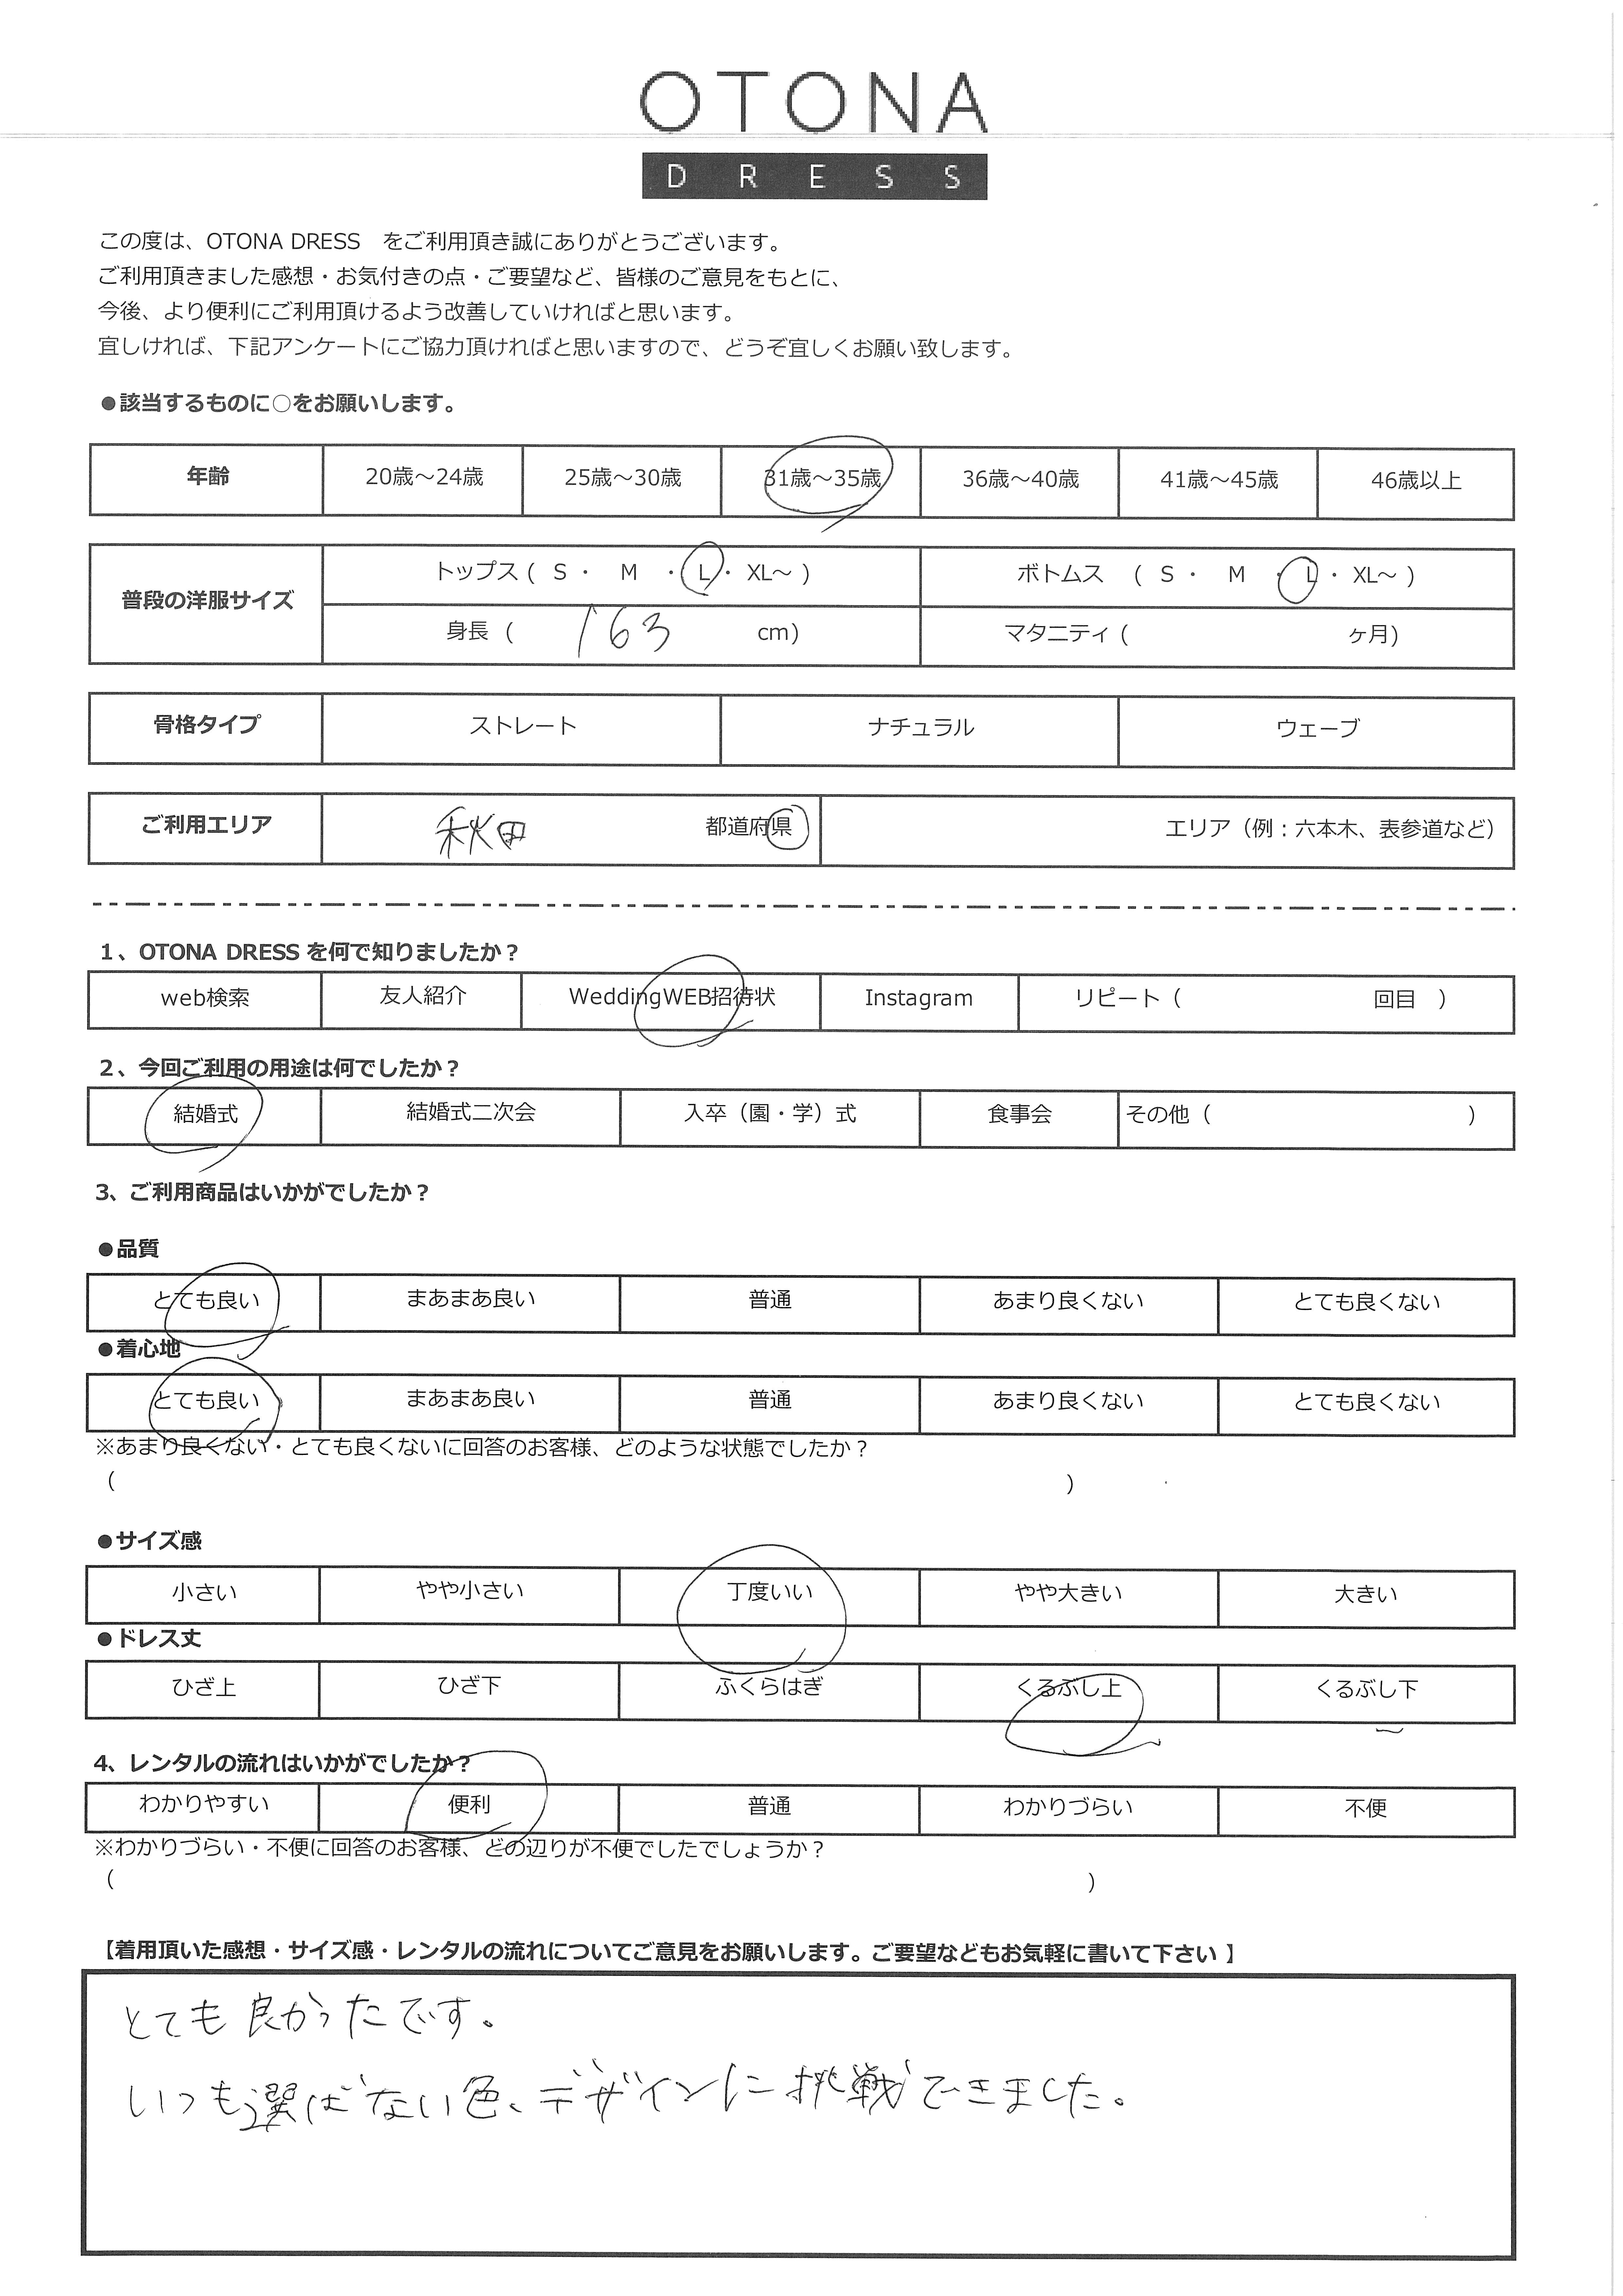 OTONA
DRESS
この度は、OTONA DRESS をご利用頂き誠にありがとうございます。
ご利用頂きました感想・お気付きの点・ご要望など、皆様のご意見をもとに、
今後、より便利にご利用頂けるよう改善していければと思います。
宜しければ、下記アンケートにご協力頂ければと思いますので、どうぞ宜しくお願い致します。
●該当するものに○をお願いします。
年齢 20歳～24歳 25歳～30歳 31歳～35歳 36歳～40歳 41歳～45歳 46歳以上
普段の洋服サイズ
トップス ( S ・ M ・ L ・ XL～ ) ボトムス ( S ・ M ・ L ・ XL～ )
身長 ( 163 cm) マタニティ ( ヶ月)
骨格タイプ ストレート ナチュラル ウェーブ
ご利用エリア 秋田 都道府県 エリア（例：六本木、表参道など）
1、OTONA DRESS を何で知りましたか？
web検索 友人紹介 WeddingWEB招待状 Instagram リピート（ 回目 ）
2、今回ご利用の用途は何でしたか？
結婚式 結婚式二次会 入卒（園・学）式 食事会 その他（ ）
3、ご利用商品はいかがでしたか？
●品質
とても良い まあまあ良い 普通 あまり良くない とても良くない
●着心地
とても良い まあまあ良い 普通 あまり良くない とても良くない
※あまり良くない・とても良くないに回答のお客様、どのような状態でしたか？
( )
●サイズ感
小さい やや小さい 丁度いい やや大きい 大きい
●ドレス丈
ひざ上 ひざ下 ふくらはぎ くるぶし上 くるぶし下
4、レンタルの流れはいかがでしたか？
わかりやすい 便利 普通 わかりづらい 不便
※わかりづらい・不便に回答のお客様、どの辺りが不便でしたでしょうか？
( )
【着用頂いた感想・サイズ感・レンタルの流れについてご意見をお願いします。ご要望などもお気軽に書いて下さい 】
とても良かったです。
いつも選ばない色、デザインに挑戦できました。